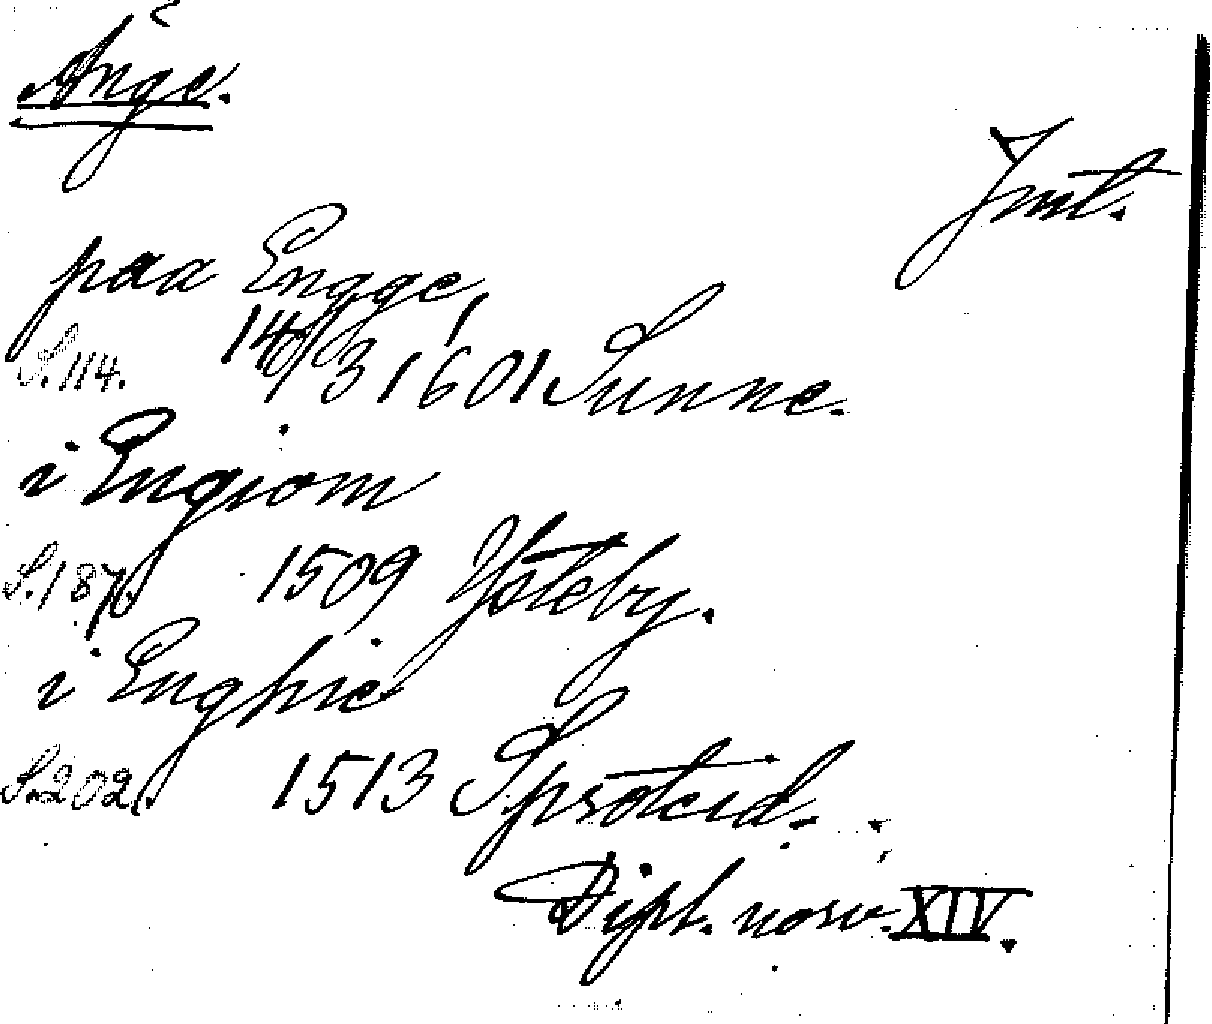 Ånge.
Jmt.
paa Engge,
S. 114. 14/3 1601 Sunne.
i Engiom
S. 187. 1509 Ysteby.
i Enghie
S. 202. 1513
Dipl. norv. XIV.